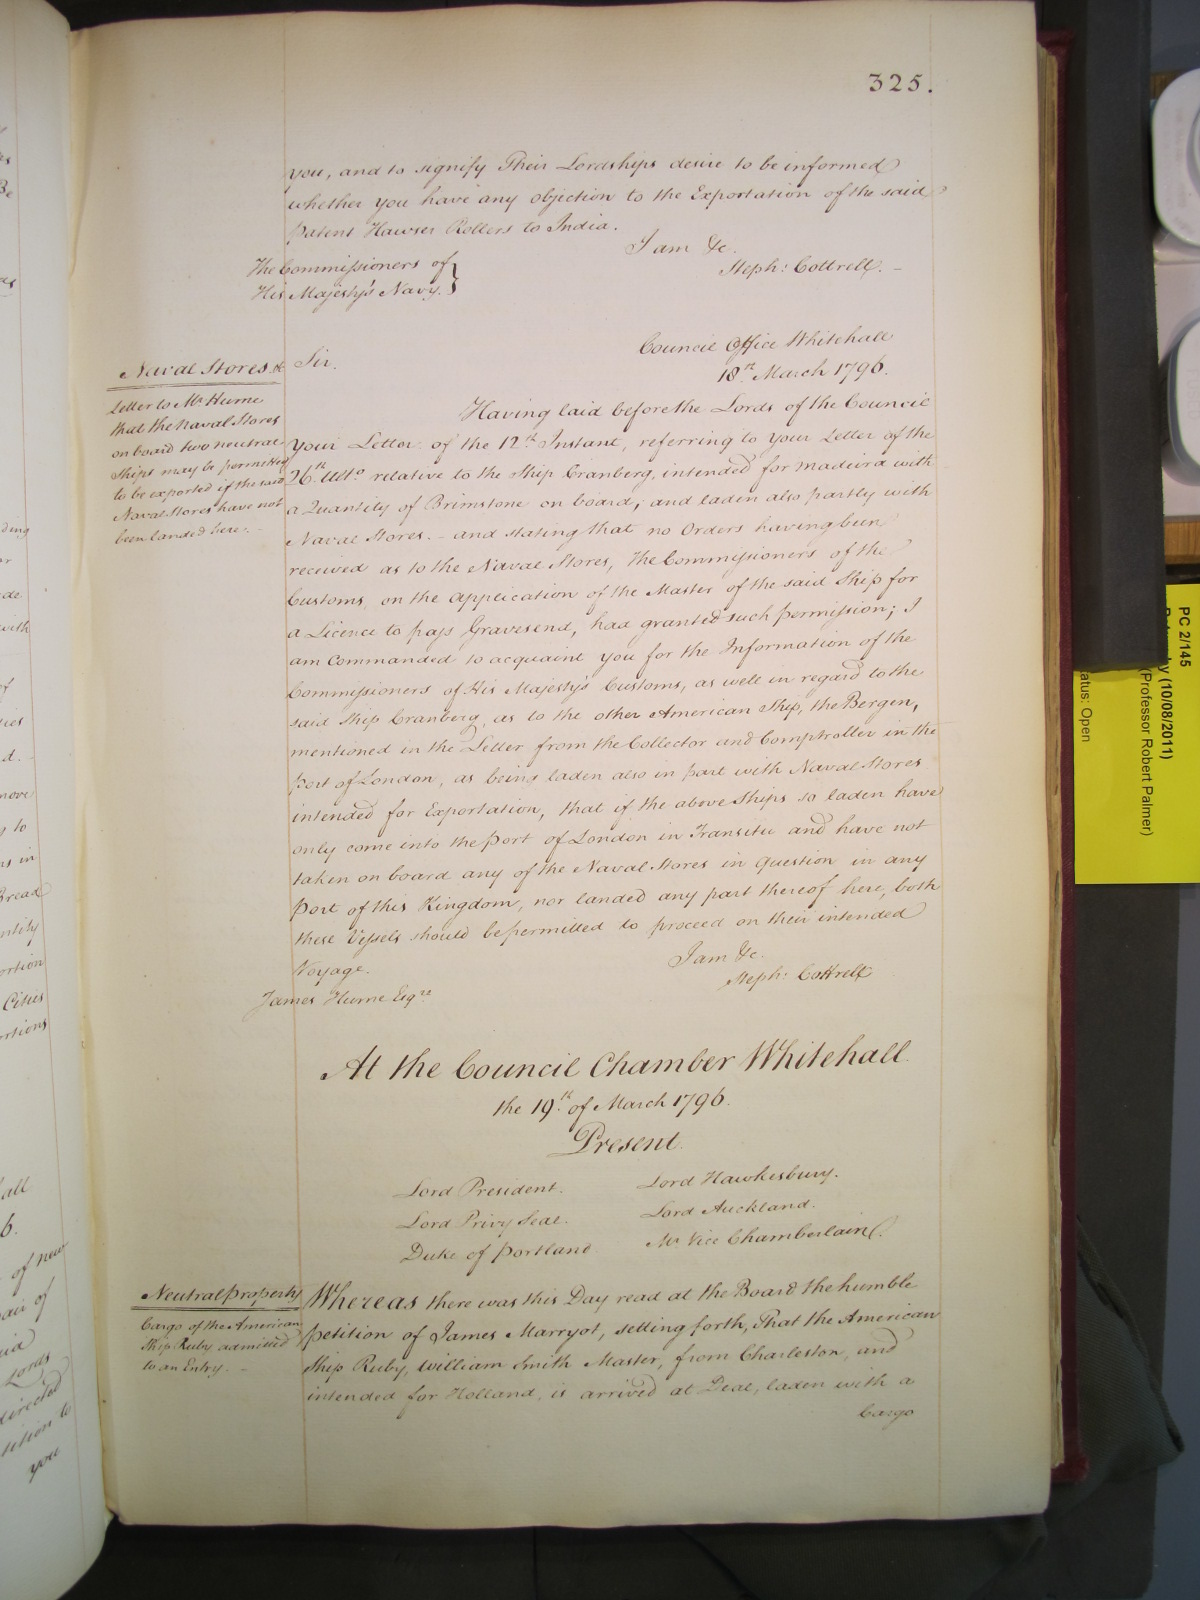 325.
you, and to signify Their Lordships desire to be informed
whether you have any objection to the Exportation of the said
patent Hawser Rollers to India.
I am &c.
Steph: Cottrell. –
The Commissioners of
His Majesty's Navy. }
Council Office Whitehall
18th March 1796.
Naval Stores &c
Letter to Mr Hume
that the Naval Stores
on board two neutral
Ships may be permitted
to be exported if the said
Naval Stores have not
been landed here. –
Sir.
Having laid before the Lords of the Council
your Letter of the 12th Instant, referring to your Letter of the
26th Ulto relative to the Ship Cranberg, intended for Madeira with
a Quantity of Brimstone on board, and laden also partly with
Naval Stores. – and stating that no Orders having been
received as to the Naval Stores, The Commissioners of the
Customs, on the application of the Master of the said Ship for
a Licence to pass Gravesend, had granted such permission; I
am Commanded to acquaint you for the Information of the
Commissioners of His Majesty's Customs, as well in regard to the
said Ship Cranberg, as to the other American Ship, the Bergen,
mentioned in the Letter from the Collector and Comptroller in the
Port of London, as being laden also in part with Naval Stores
intended for Exportation, that if the above Ships so laden have
only come into the Port of London in Transitu and have not
taken on board any of the Naval Stores in Question in any
Port of this Kingdom, nor landed any part thereof here, both
these Vessels should be permitted to proceed on their intended
Voyage.
I am &c.
Steph: Cottrell
James Hume Esqre
At the Council Chamber Whitehall
the 19th of March 1796.
Present.
Lord President. Lord Hawkesbury.
Lord Privy Seal. Lord Auckland.
Duke of Portland Mr Vice Chamberlain.
Neutral property
Cargo of the American
Ship Ruby admitted
to an Entry. –
Whereas there was this Day read at the Board the humble
petition of James Marryot, setting forth, That the American
Ship Ruby, William Smith Master, from Charleston, and
intended for Holland, is arrived at Deal, laden with a
Cargo
PC 2/145
(10/08/2011)
(Professor Robert Palmer)
atus: Open